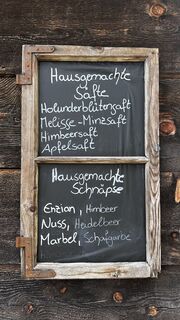 Hausgemachte
Säfte
Holunderblütensaft
Melisse-Minzsaft
Himbeersaft
Apfelsaft
Hausgemachte
Schnäpse
Enzian, Himbeer
Nuss, Heidelbeer
Marbel, Schafgarbe